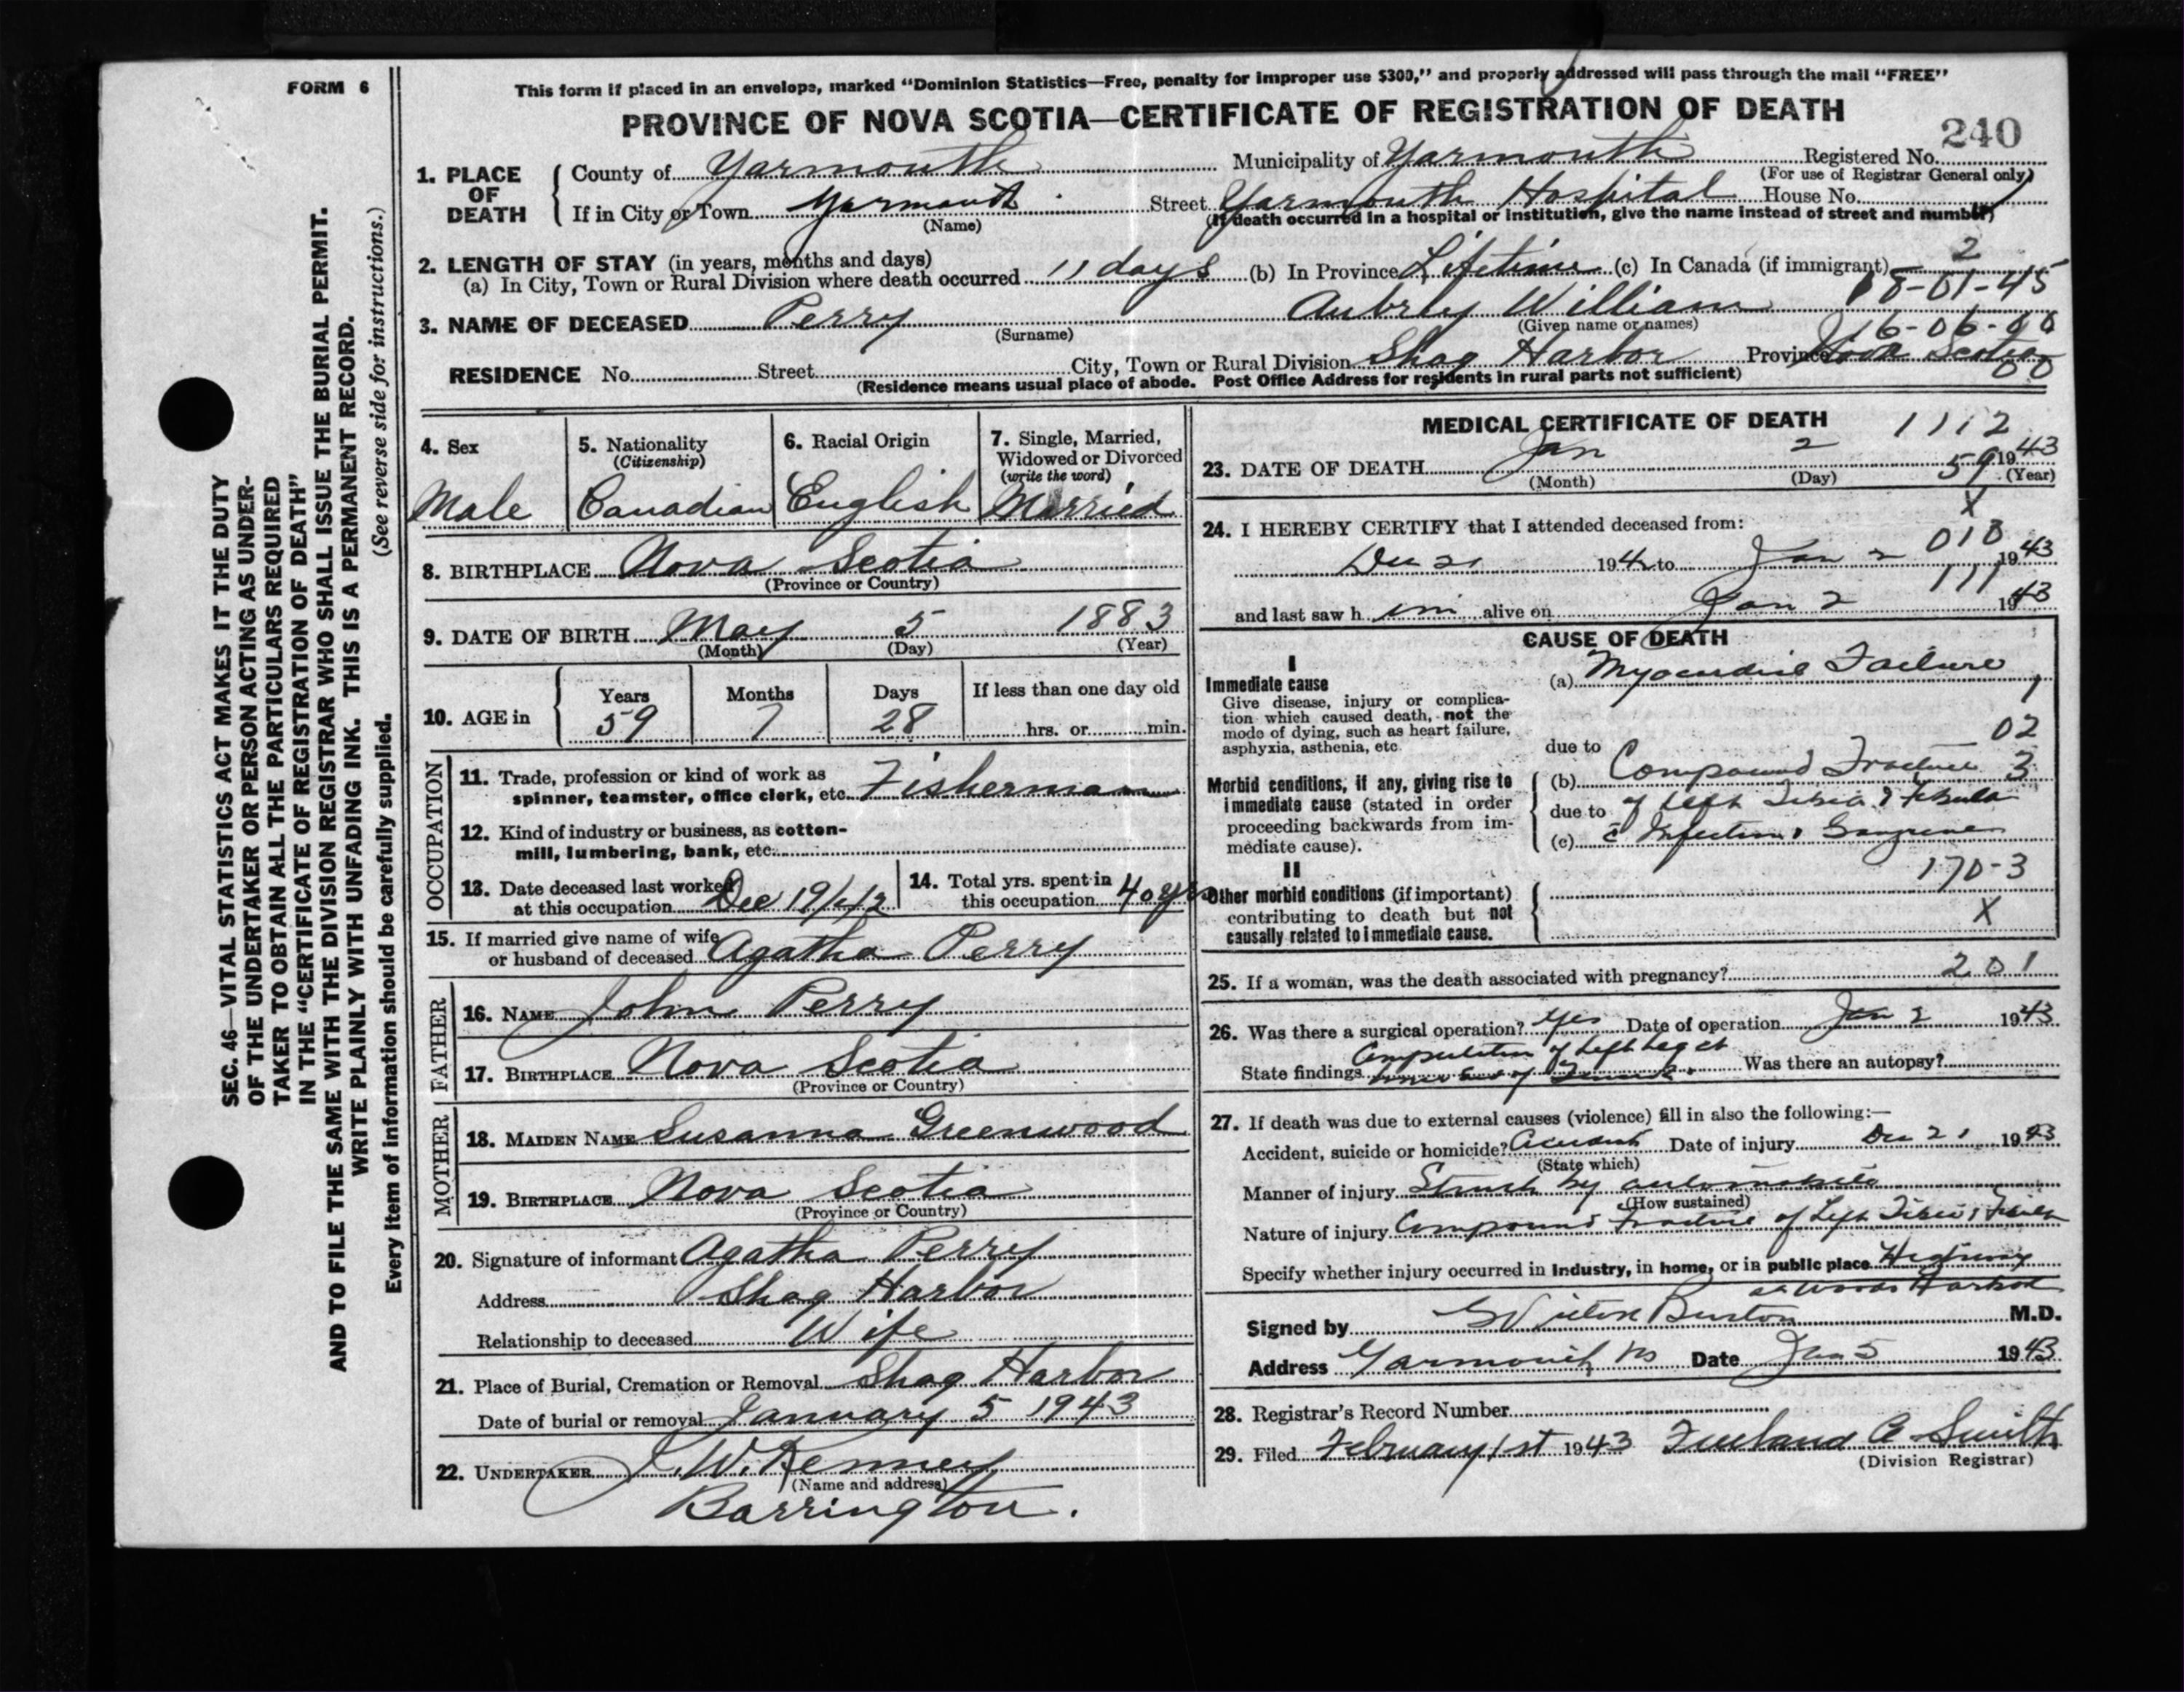 FORM 6
This form if placed in an envelope, marked “Dominion Statistics—Free, penalty for improper use $300,” and properly addressed will pass through the mail “FREE”
PROVINCE OF NOVA SCOTIA—CERTIFICATE OF REGISTRATION OF DEATH
240
1. PLACE OF DEATH
County of Yarmouth Municipality of Yarmouth Registered No.
(For use of Registrar General only)
If in City or Town Yarmouth Street Yarmouth Hospital House No.
(Name) (If death occurred in a hospital or institution, give the name instead of street and number)
2. LENGTH OF STAY (in years, months and days) 2
(a) In City, Town or Rural Division where death occurred 11 days (b) In Province Lifetime (c) In Canada (if immigrant)
18-01-45
3. NAME OF DECEASED Perry Aubrey William
(Surname) (Given name or names)
16-06-00
RESIDENCE No. Street City, Town or Rural Division Shag Harbor Province Nova Scotia
00
(Residence means usual place of abode. Post Office Address for residents in rural parts not sufficient)
4. Sex
Male
5. Nationality
(Citizenship)
Canadian
6. Racial Origin
English
7. Single, Married,
Widowed or Divorced
(write the word)
Married
8. BIRTHPLACE Nova Scotia
(Province or Country)
9. DATE OF BIRTH May 5 1883
(Month) (Day) (Year)
10. AGE in
Years Months Days If less than one day old
59 7 28 hrs. or min.
OCCUPATION
11. Trade, profession or kind of work as
spinner, teamster, office clerk, etc. Fisherman
12. Kind of industry or business, as cotton-
mill, lumbering, bank, etc.
13. Date deceased last worked
at this occupation Dec 19/42
14. Total yrs. spent in
this occupation 40 yrs
15. If married give name of wife
or husband of deceased Agatha Perry
FATHER
16. NAME John Perry
17. BIRTHPLACE Nova Scotia
(Province or Country)
MOTHER
18. MAIDEN NAME Susanna Greenwood
19. BIRTHPLACE Nova Scotia
(Province or Country)
20. Signature of informant Agatha Perry
Address Shag Harbor
Relationship to deceased Wife
21. Place of Burial, Cremation or Removal Shag Harbor
Date of burial or removal January 5 1943
22. UNDERTAKER J. W. Kenney
(Name and address)
Barrington.
MEDICAL CERTIFICATE OF DEATH 1112
23. DATE OF DEATH Jan 2 1943
59
(Month) (Day) (Year)
X
24. I HEREBY CERTIFY that I attended deceased from:
Dec 21 1942 to Jan 2 1943
and last saw h im alive on Jan 2 1943
111
CAUSE OF DEATH
I
Immediate cause
Give disease, injury or complica-
tion which caused death, not the
mode of dying, such as heart failure,
asphyxia, asthenia, etc.
(a) Myocardial Failure
1
02
due to
Morbid conditions, if any, giving rise to
immediate cause (stated in order
proceeding backwards from im-
mediate cause).
(b) Compound Fracture 3
due to of left Tibia & Fibula
(c) c̄ Infection & Gangrene
II
170-3
Other morbid conditions (if important)
contributing to death but not
causally related to immediate cause.
X
25. If a woman, was the death associated with pregnancy? 201
26. Was there a surgical operation? Yes Date of operation Jan 2 1943
State findings Amputation of Left Leg at Was there an autopsy?
27. If death was due to external causes (violence) fill in also the following:—
Accident, suicide or homicide? Accident Date of injury Dec 21 1943
(State which)
Manner of injury Struck by automobile
(How sustained)
Nature of injury Compound Fracture of Left Tibia & Fibula
Specify whether injury occurred in industry, in home, or in public place Highway
at Woods Harbor
Signed by Burton M.D.
Address Yarmouth NS Date Jan 5 1943
28. Registrar’s Record Number
29. Filed February 1st 1943 Freeland A Smith
(Division Registrar)
SEC. 46—VITAL STATISTICS ACT MAKES IT THE DUTY
OF THE UNDERTAKER OR PERSON ACTING AS UNDER-
TAKER TO OBTAIN ALL THE PARTICULARS REQUIRED
IN THE “CERTIFICATE OF REGISTRATION OF DEATH”
AND TO FILE THE SAME WITH THE DIVISION REGISTRAR WHO SHALL ISSUE THE BURIAL PERMIT.
WRITE PLAINLY WITH UNFADING INK. THIS IS A PERMANENT RECORD.
(See reverse side for instructions.)
Every item of information should be carefully supplied.